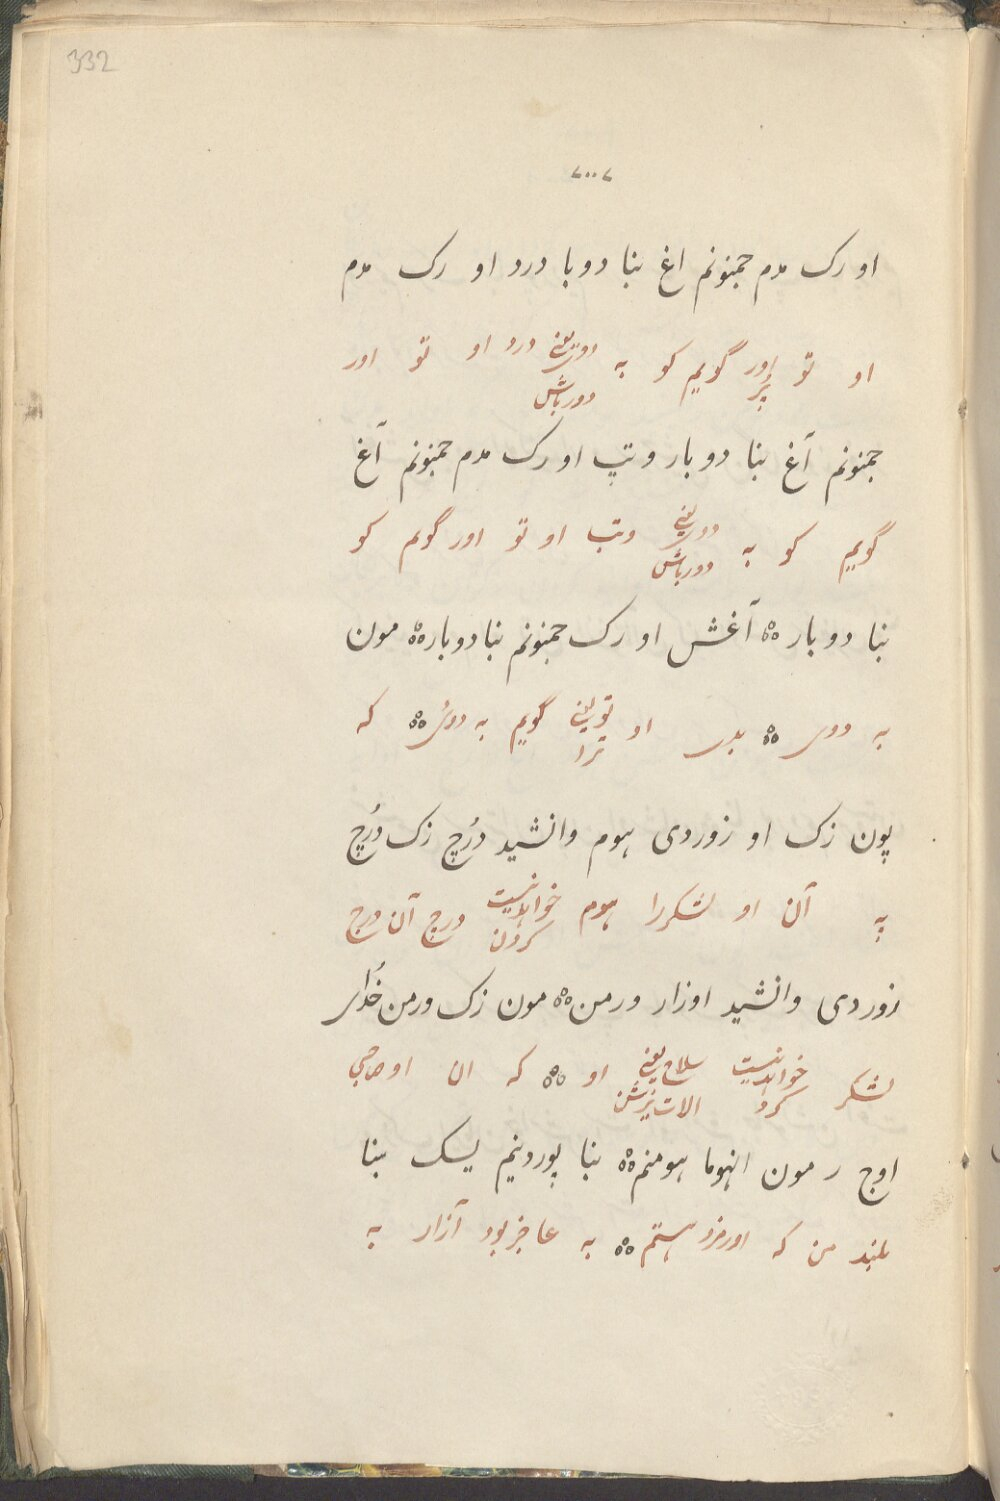 332
او رک مدم جمنونم اغ بنا دوبا درد او رک مدم
او تو اور گویم کو به دوی یعنی درد او تو اور
بر دور باش
جمنونم آغ بنا دوبار و تپ او رک مدم جمنونم آغ
گویم کو به دوی یعنی وتب او تو اور گویم کو
دور باش
بنا دوبار ஃ آغش او رک جمنونم بنا دوبار ஃ مون
به دوی ஃ بدی او تو یعنی گویم به دوی ஃ که
ترا
پون زک او زوردی هوم وانشید دُرج زک دُرج
په آن او لشکررا هوم خوانیست درج آن درج
کردن
زوردی وانشید اوزار ورمن ஃ مون زک ورمن خُدای
لشکر خوانیست سلاح یعنی او ஃ که ان او صاحبی
کرد الات
اوج ر مون انهوما هومنم ஃ بنا پوردینم یسک بنا
بلند من که اورمزد هستم ஃ به عاجز بود آزار به